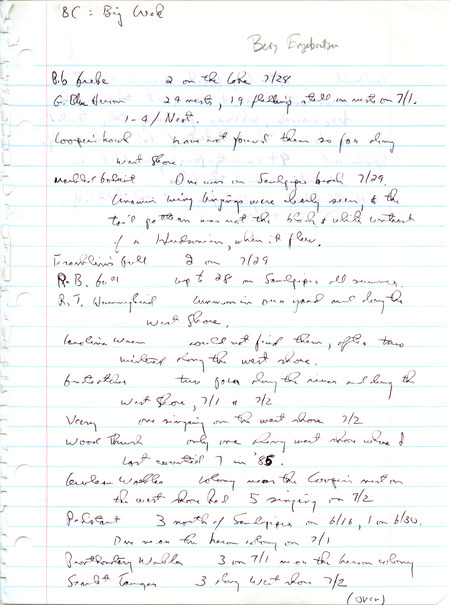 BC = Big Creek
Betz Engebretsen
P.b. Grebe 2 on the Lake 7/28
G. Blue Heron 29 nests, 19 fledlings still on nests on 7/1.
1-4/Nest.
Cooper's hawk have not found them so far along
west shore.
Marbled Godwit One was on Sandpiper beach 7/29.
Cinnamon wing linings were clearly seen, & the
tail pattern was not the black & white contrast
of a Hudsonian, when it flew.
Franklin's Gull 2 on 7/29
R.B. Gull up to 28 on Sandpiper all summer.
R.T. Hummingbird Common in our yard and along the
West Shore.
Carolina Wren could not find them, after two
along the west shore.
two along the and along the
West Shore, 7/1 & 7/2
Veery one singing on the west shore 7/2
Wood Thrush only one along west shore where I
last counted 7 in '85.
Cerulean Warbler colony near the Cooper's nest on
the west shore had 5 singing on 7/2
Redstart 3 north of Sandpiper on 6/16, 1 on 6/30.
One near the heron colony on 7/1
Prothonotary Warbler 3 on 7/1 near the heron colony
Scarlet Tanager 3 along West Shore 7/2
(over)